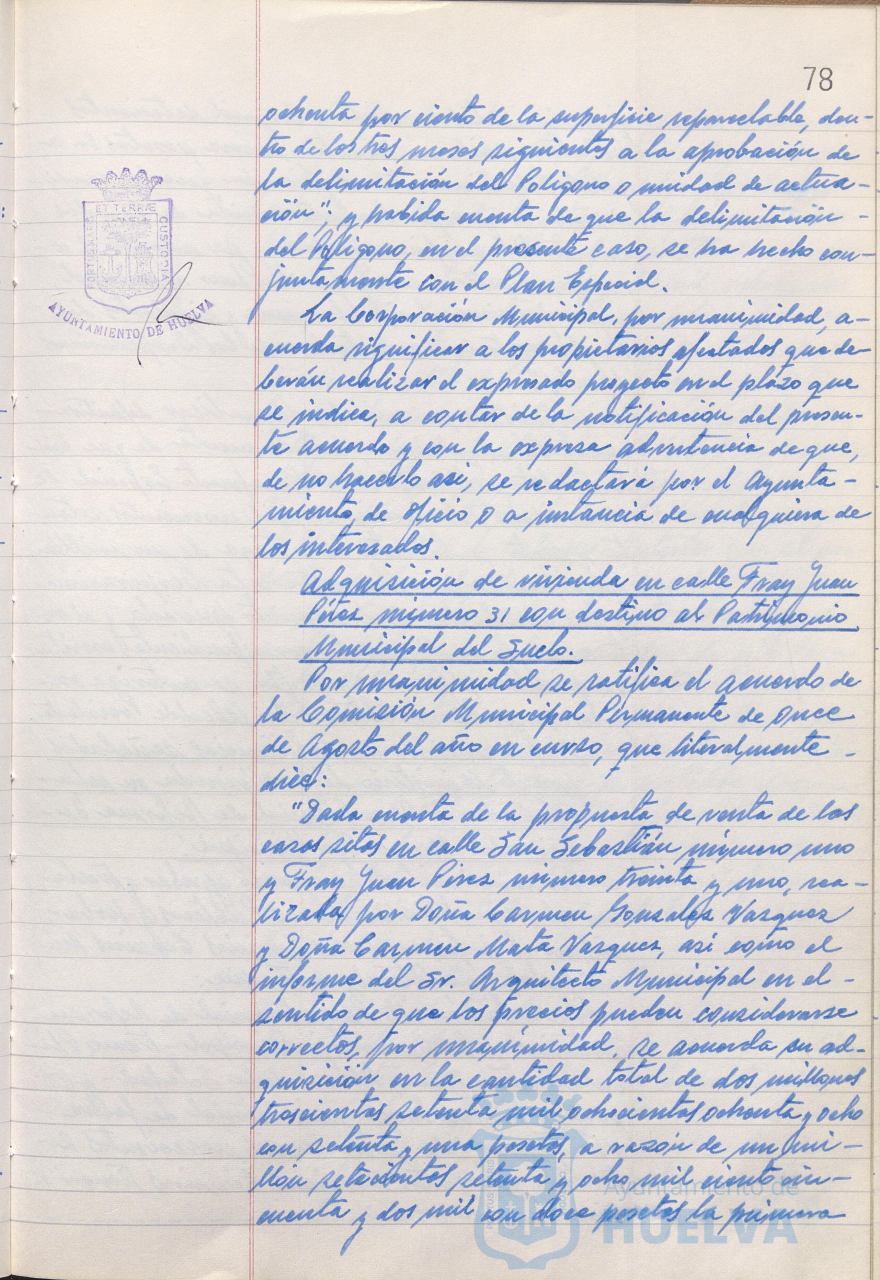 78
ochenta por ciento de la superficie reparcelable, den-
tro de los tres meses siguientes a la aprobación de
la delimitación del Polígono o unidad de actua-
ción"; y habida cuenta de que la delimitación -
del Polígono, en el presente caso, se ha hecho con-
juntamente con el Plan Especial.
La Corporación Municipal, por unanimidad, a-
cuerda significar a los propietarios afectados que de-
berán realizar el expresado proyecto en el plazo que
se indica, a contar de la notificación del presen-
te acuerdo y con la expresa advertencia de que,
de no hacerlo así, se redactará por el Ayunta-
miento, de oficio o a instancia de cualquiera de
los interesados.
Adquisición de vivienda en calle Fray Juan
Pérez número 31 con destino al Patrimonio
Municipal del Suelo.
Por unanimidad se ratifica el acuerdo de
la Comisión Municipal Permanente de once
de Agosto del año en curso, que literalmente -
dice:
"Dada cuenta de la propuesta de venta de las
casas sitas en calle San Sebastián número uno
y Fray Juan Pérez número treinta y uno, rea-
lizada por Doña Carmen González Vazquez
y Doña Carmen Mata Vazquez, así como el
informe del Sr. Arquitecto Municipal en el -
sentido de que los precios pueden considerarse
correctos, por unanimidad, se acuerda su ad-
quisición en la cantidad total de dos millones
trescientas setenta mil ochocientas ochenta y ocho
con setenta y una pesetas, a razón de un mi-
llón setecientas setenta y ocho mil ciento cin-
cuenta y dos mil con doce pesetas la primera
ET TERRÆ
CUSTODIA
AYUNTAMIENTO DE HUELVA
Ayuntamiento de
HUELVA